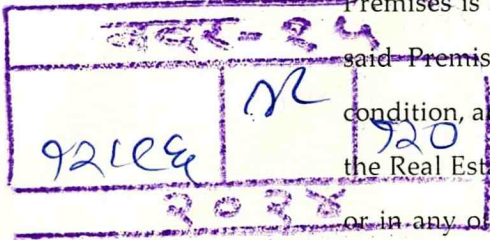 Premises is
बदर - २५
said Premis
condition, a
१२०
the Real Est
२०२४
or in any of